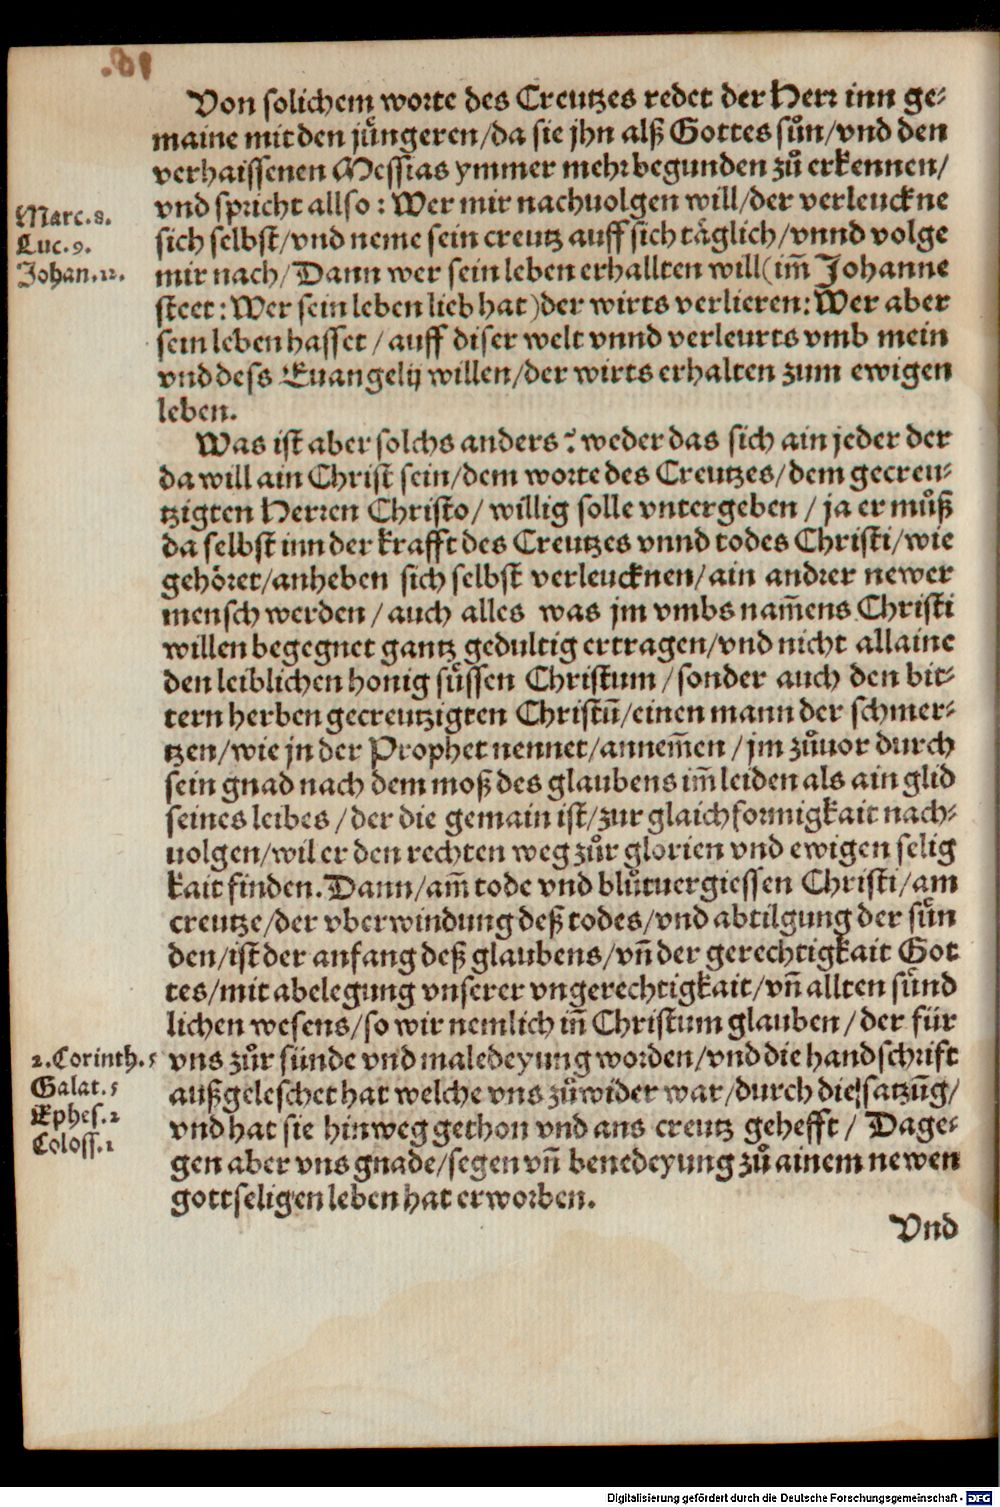 Von solichem worte des Creutzes redet der Herr inn ge-
maine mit den jüngeren/da sie jhn alß Gottes sůn/vnd den
verhaissenen Messias ymmer mehr begunden zů erkennen/
Marc.8.
vnd spricht allso: Wer mir nachuolgen will/der verleuckne
Luc.9.
sich selbst/vnd neme sein creutz auff sich täglich/vnnd volge
Johan.12.
mir nach/Dann wer sein leben erhallten will(im̃ Johanne
steet: Wer sein leben lieb hat)der wirts verlieren: Wer aber
sein leben hasset/auff diser welt vnnd verleurts vmb mein
vnd dess Euangelij willen/der wirts erhalten zum ewigen
leben.
Was ist aber solchs anders? weder das sich ain jeder der
da will ain Christ sein/dem worte des Creutzes/dem gecreu-
tzigten Herren Christo/willig solle vntergeben/ja er můß
da selbst inn der krafft des Creutzes vnnd todes Christi/wie
gehöret/anheben sich selbst verleucknen/ain andrer newer
mensch werden/auch alles was jm vmbs nam̃ens Christi
willen begegnet gantz gedultig ertragen/vnd nicht allaine
den leiblichen honig süssen Christum/sonder auch den bit-
tern herben gecreutzigten Christũ/einen mann der schmer-
tzen/wie jn der Prophet nennet/annem̃en/jm zůuor durch
sein gnad nach dem moß des glaubens im̃ leiden als ain glid
seines leibes/der die gemain ist/zur glaichformigkait nach-
uolgen/wil er den rechten weg zůr glorien vnd ewigen selig
kait finden. Dann/am̃ tode vnd blůtuergiessen Christi/am
creutze/der vberwindung deß todes/vnd abtilgung der sün
den/ist der anfang deß glaubens/vñ der gerechtigkait Got
tes/mit abelegung vnserer vngerechtigkait/vñ allten sünd
lichen wesens/so wir nemlich iñ Christum glauben/der für
2.Corinth.5
vns zůr sünde vnd maledeyung worden/vnd die handschrift
Galat.5
außgeleschet hat welche vns zůwider war/durch die satzũg/
Ephes.2
vnd hat sie hinweg gethon vnd ans creutz gehefft/Dage-
Coloss.1
gen aber vns gnade/segen vñ benedeyung zů ainem newen
gottseligen leben hat erworben.
Vnd
Digitalisierung gefördert durch die Deutsche Forschungsgemeinschaft - DFG